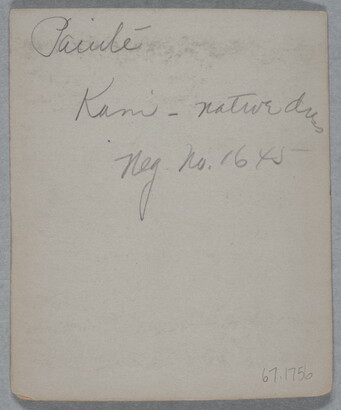 Paiute
Kani - native dress
Neg. No. 1645
67.1756